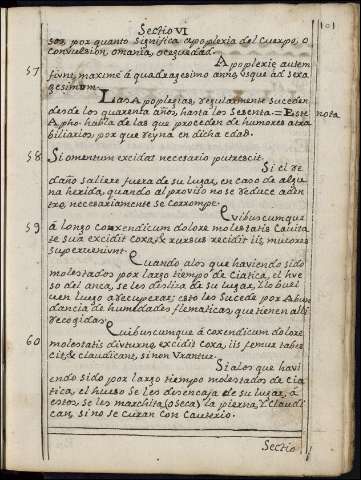 Sectio VI
101
sos, por quanto significa apoplexia del Cuerpo, o
Convulsion, omania, oceguedad.
57
Apoplexie autem
fiunt maximé á quadragesimo anno, usque ad sexa
gesimum.
Las Apoplegias, regularmente suceden
desde los quarenta años, hasta los Sesenta = Este nota
Apho. habla de las que proceden de humores atra
biliarios, por que reyna en dicha edad.
58
Si omentum excidat necesario putrescit.
Si el re
daño saliere fuera de su lugar, en caso de algu
na herida, quando al proviso no se reduce aden
tro, necesariamente se corrompe.
59
Quibuscumque
á longo coxendicum dolore molestatis Cauita
te sua excidit coxa, & rursus recidit iis, mucores
superveniunt.
Quando alos que haviendo sido
molestados por largo tiempo de Ciatica, el hue
so del anca, se les desliza de su lugar, y lo buel
uen luego a recuperar; esto les sucede por Abun
dancia de humedades flematicas, que tienen alli
recogidas.
60
Quibuscumque á coxendicum dolore
molestatis diuturno, excidit coxa, iis femur tabes
cit, & claudicant, si non Vrantur.
Si alos que havi
endo sido por largo tiempo molestados de Cia
tica, el hueso se les desencaja de su lugar, á
estos, se les marchita (o seca) la pierna, y Claudi
can, si no se curan con Cauterio.
Sectio